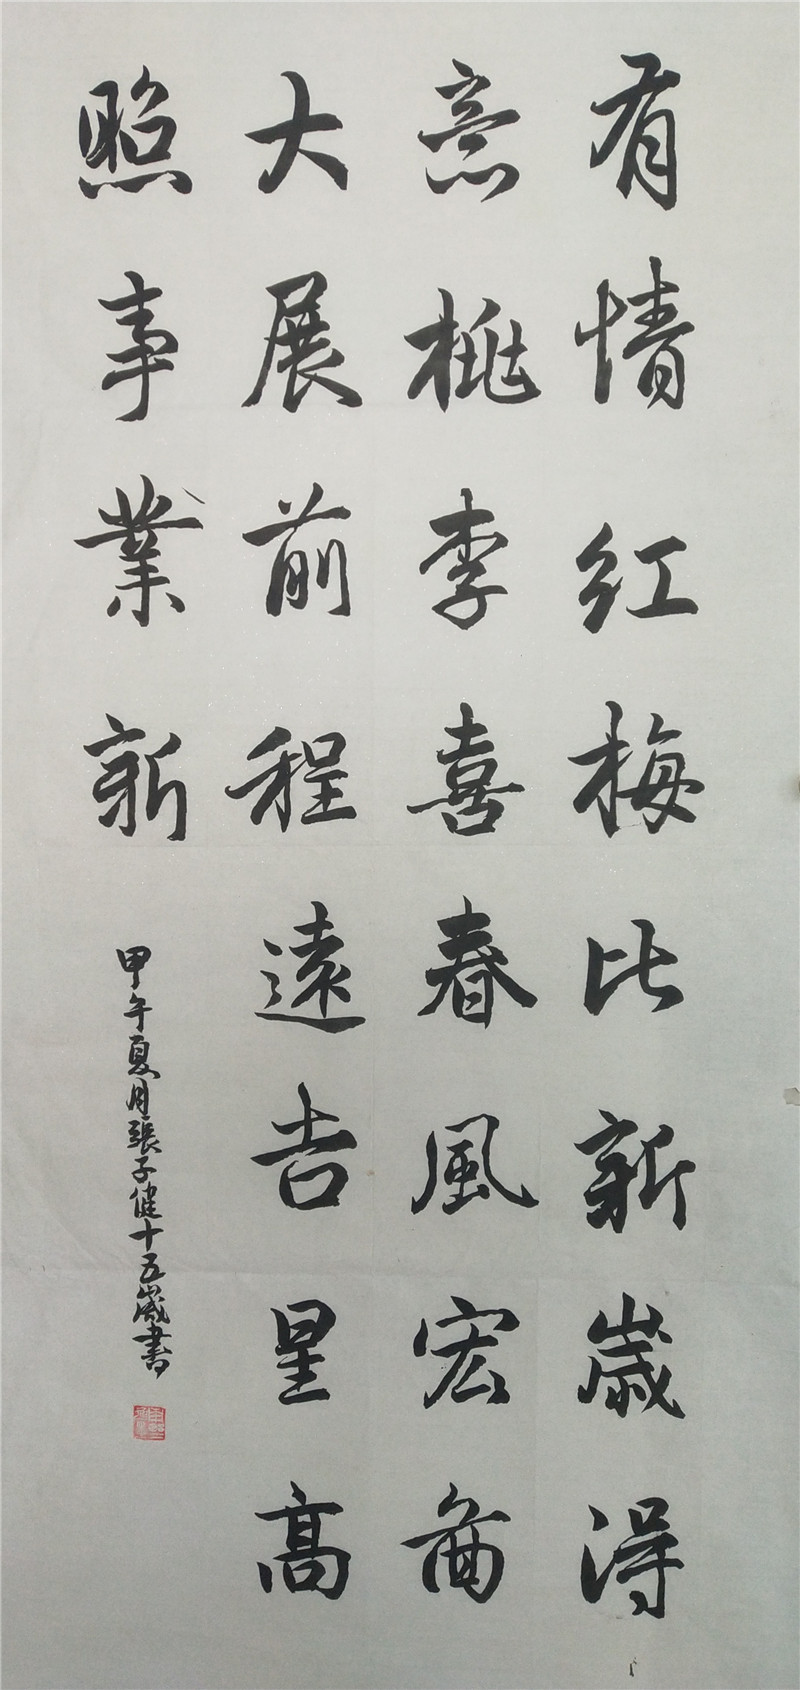 有情红梅比新歲得
意桃李喜春風宏啚
大展前程遠吉星高
照事業新
甲午夏月張子健十五歲書